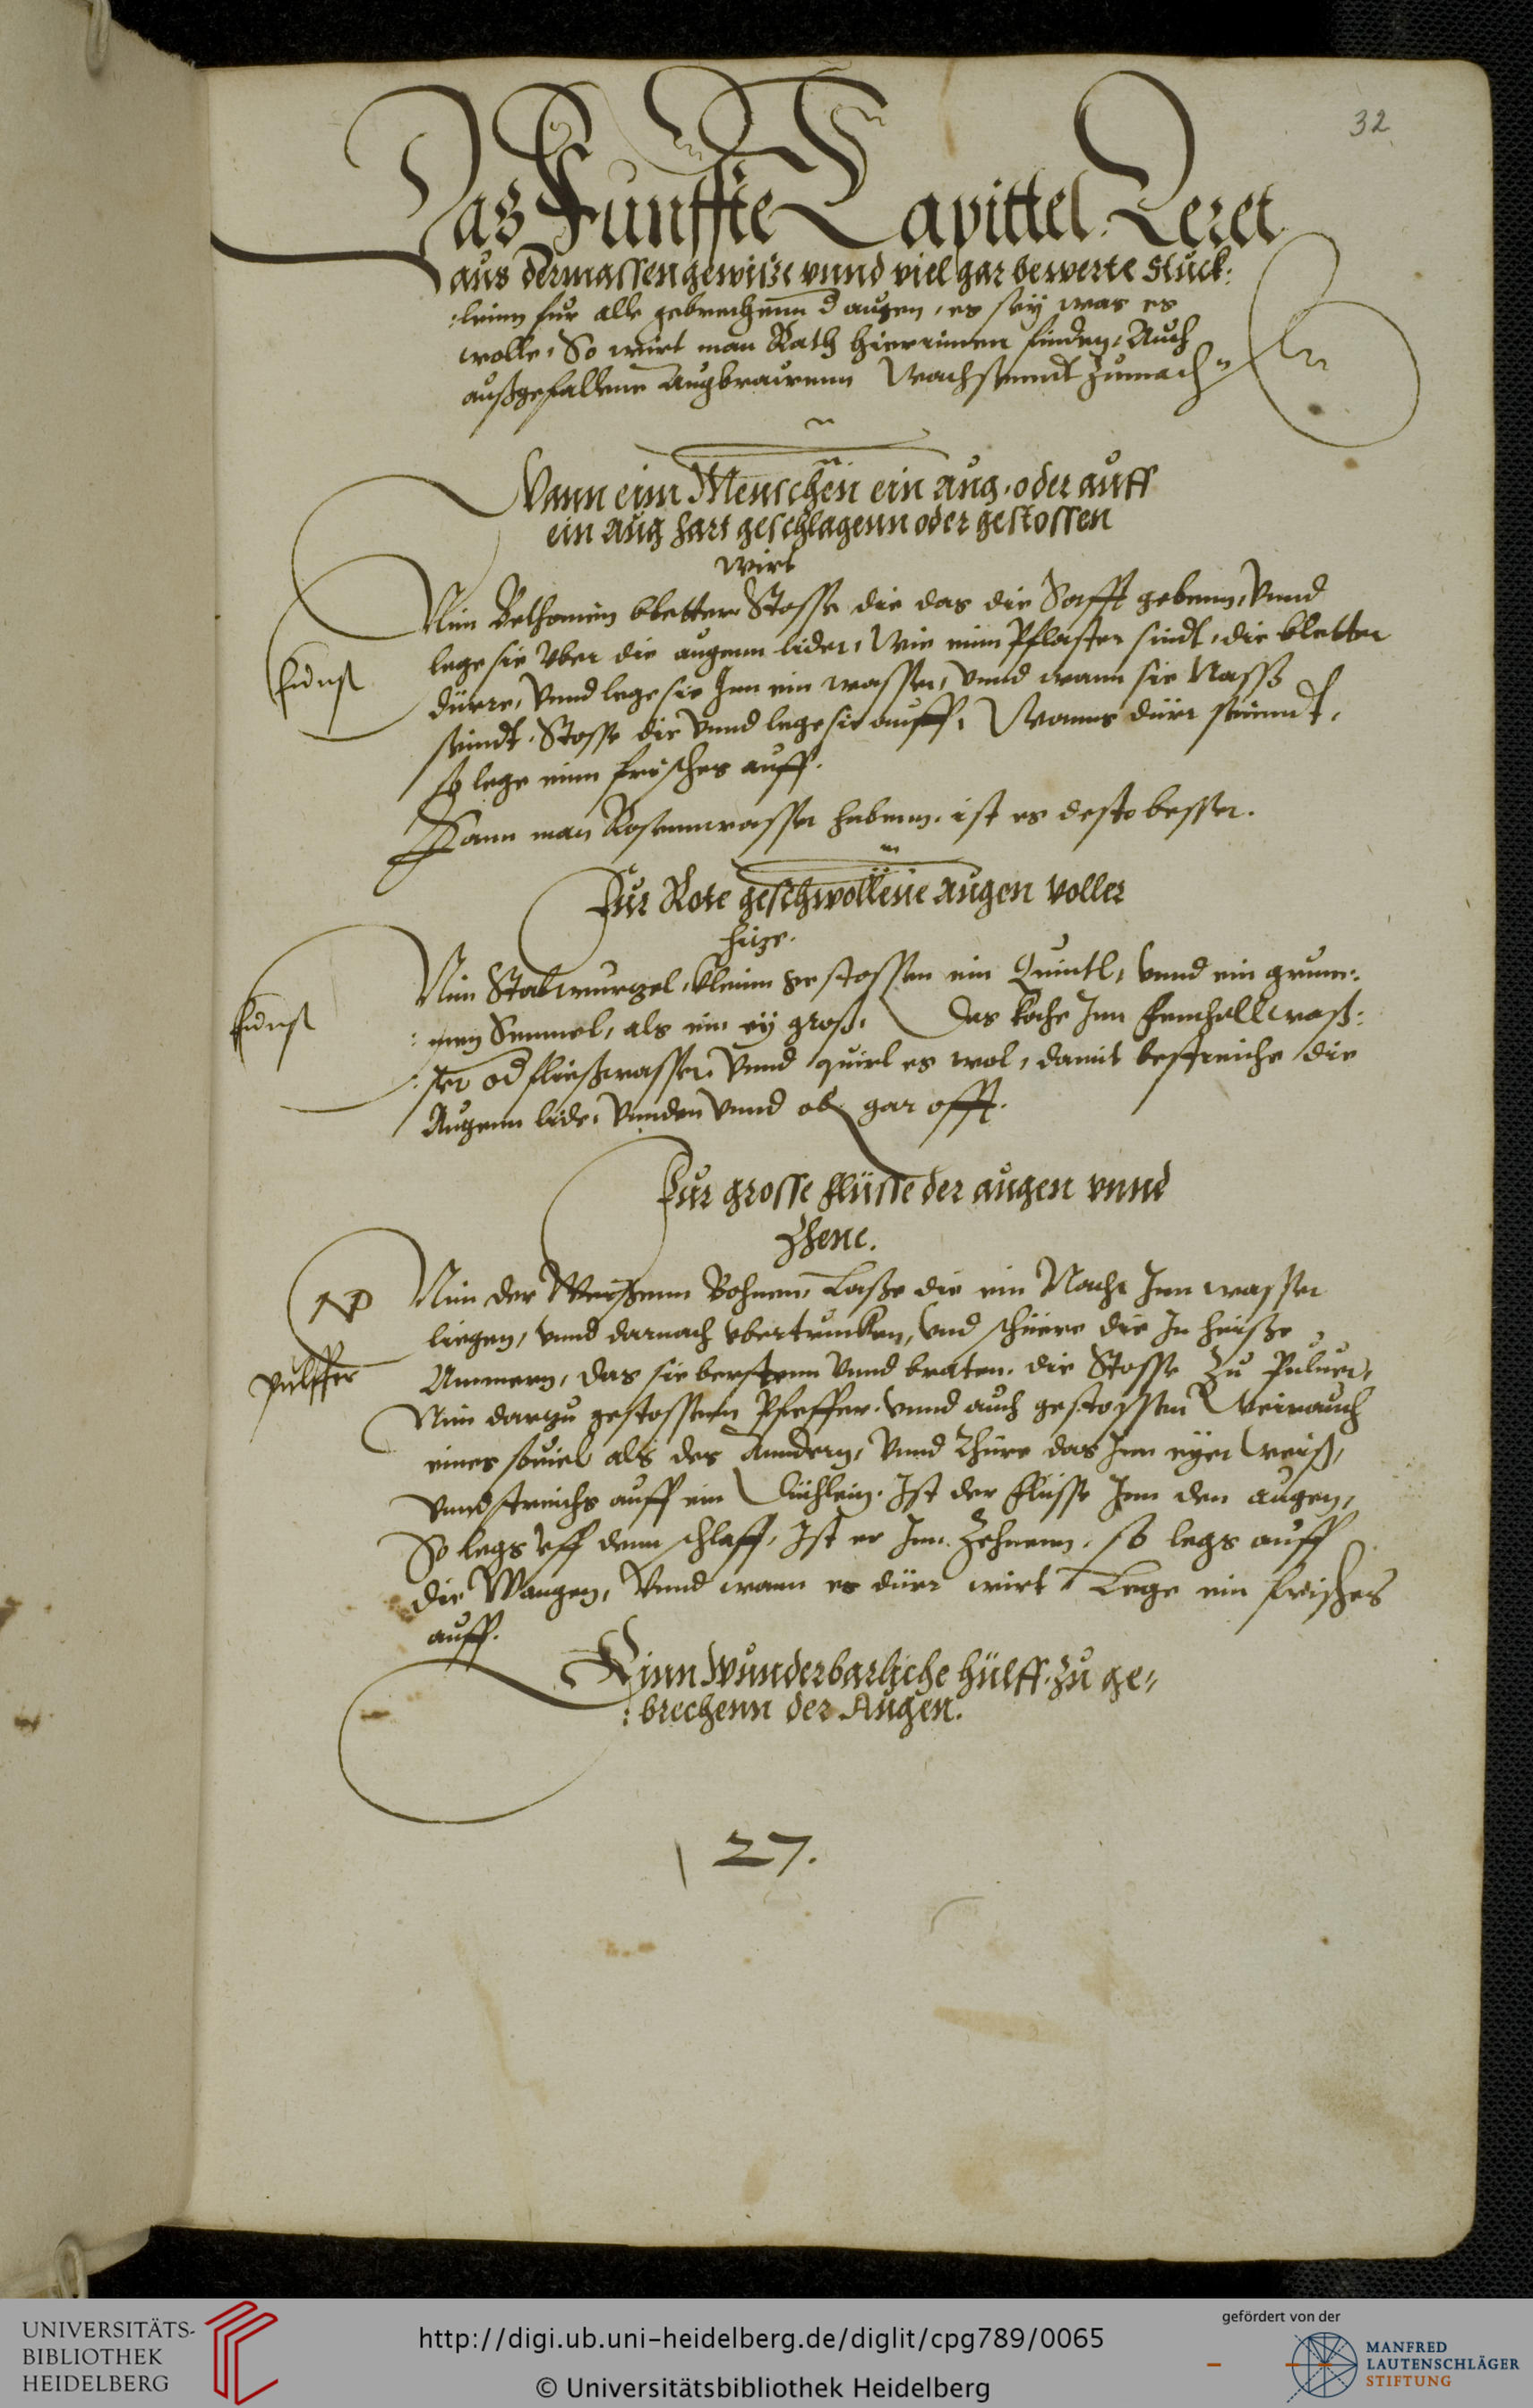 32
Das Funffte Capittel Leret
aus dermassen gewisse vnnd viel gar bewerte stuck:
:leinn fur alle gebrechenn d augen, es seÿ was es
wolle, So wirt man Rath hierinnen finden, Auch
außgefallene Augbrawenn Wachssenndt zumach
Wann eim Menschen ein aug, oder auff
ein aug hart geschlagenn oder gestossen
wirt
Nim Bethonien bletter Stosse die das die Safft gebenn, Vnnd
lege sie Vber die augenn lider, Wie einn Pflaster sindt, die bletter
Kunst
dürre, Vnnd lege sie Inn ein wasser, Vnnd wann sie Nasß
seindt, Stosse die Vnnd lege sie auff, Wanns dürr seinndt,
so lege einn frisches auff.
Kann man Rosennwasser habenn, ist es desto besser.
Fur Rote geschwollene augen voller
hitze.
Nim Stabwurtzel, kleinn gestossen ein Quintl, Vnnd ein grum:
Kunst
:men Semmel, als ein eÿ groß, Das koche Inn fenchellwaß:
:ser od fließwasser, Vnnd quirl es wol, damit bestreiche die
Augenn lide, Vnnden Vnnd ob gar offt.
Fur grosse flüsse der augen vnnd
Zhene.
Nim der Weissenn Bohnen, Lasse die ein Nacht Inn wasser
liegen, vnnd darnach vbertrucken, vnd schüre die In heisse
pulffer
Ammern, das sie berstenn Vnnd braten, die Stosse Zu Puluer,
Nim dartzu gestossenn Pfeffer, vnnd auch gestossen Weirauch
eines souiel als des Anndern, Vnnd Rhüre das Inn eÿer weiß,
Vnnd streichs auff ein Tüchlein, Ist der flusse Inn den augen,
So legs vff denn schlaff, Ist er Inn Zehnenn, so legs auff
die Wangen, Vnnd wann es dürr wirt Lege ein frisches
auff.
Einn wunderbarliche hülff zu ge-
:brechenn der Augen.
27.
UNIVERSITÄTS-
BIBLIOTHEK
HEIDELBERG
http://digi.ub.uni-heidelberg.de/diglit/cpg789/0065
© Universitätsbibliothek Heidelberg
gefördert von der
MANFRED
LAUTENSCHLÄGER
STIFTUNG